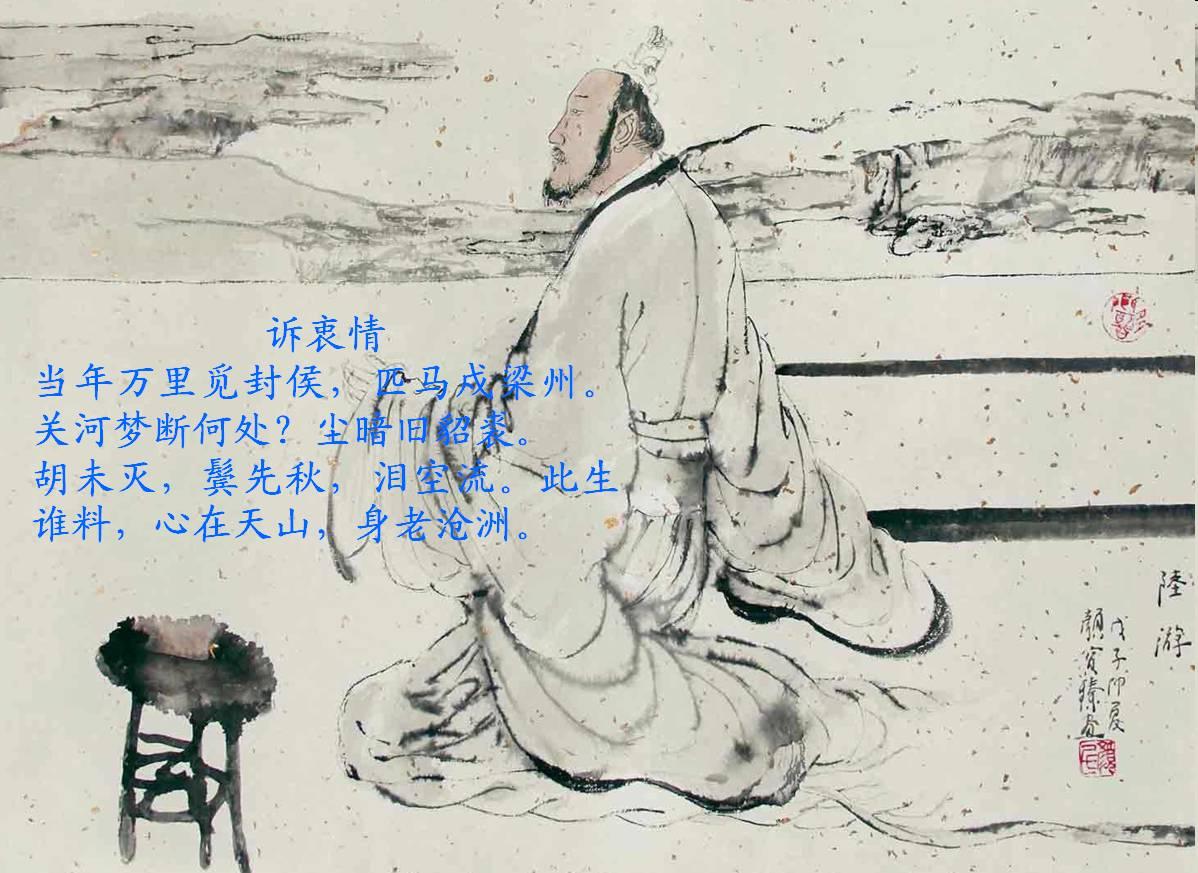 诉衷情
当年万里觅封侯，匹马戍梁州。
关河梦断何处？尘暗旧貂裘。
胡未灭，鬓先秋，泪空流。此生
谁料，心在天山，身老沧洲。
陸游
戊子仲夏